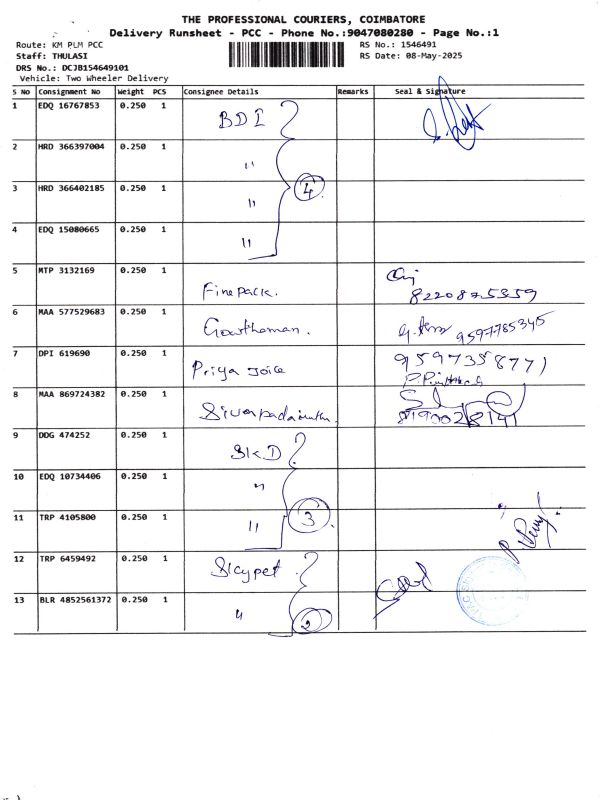 THE PROFESSIONAL COURIERS, COIMBATORE
Delivery Runsheet - PCC - Phone No.:9047080280 - Page No.:1
Route: KM PLM PCC
Staff: THULASI
DRS No.: DCJB154649101
Vehicle: Two Wheeler Delivery
RS No.: 1546491
RS Date: 08-May-2025
S No Consignment No Weight PCS Consignee Details Remarks Seal & Signature
1 EDQ 16767853 0.250 1 BDI
2 HRD 366397004 0.250 1 "
3 HRD 366402185 0.250 1 " 4
4 EDQ 15080665 0.250 1 "
5 MTP 3132169 0.250 1 Finepack. 8220875359
6 MAA 577529683 0.250 1 Gowthaman. 9597785345
7 DPI 619690 0.250 1 Priya Joice 9597358771
8 MAA 869724382 0.250 1 8190028141
9 DDG 474252 0.250 1 SKD
10 EDQ 10734406 0.250 1 "
11 TRP 4105800 0.250 1 " 3
12 TRP 6459492 0.250 1 Skypet
13 BLR 4852561372 0.250 1 " 2